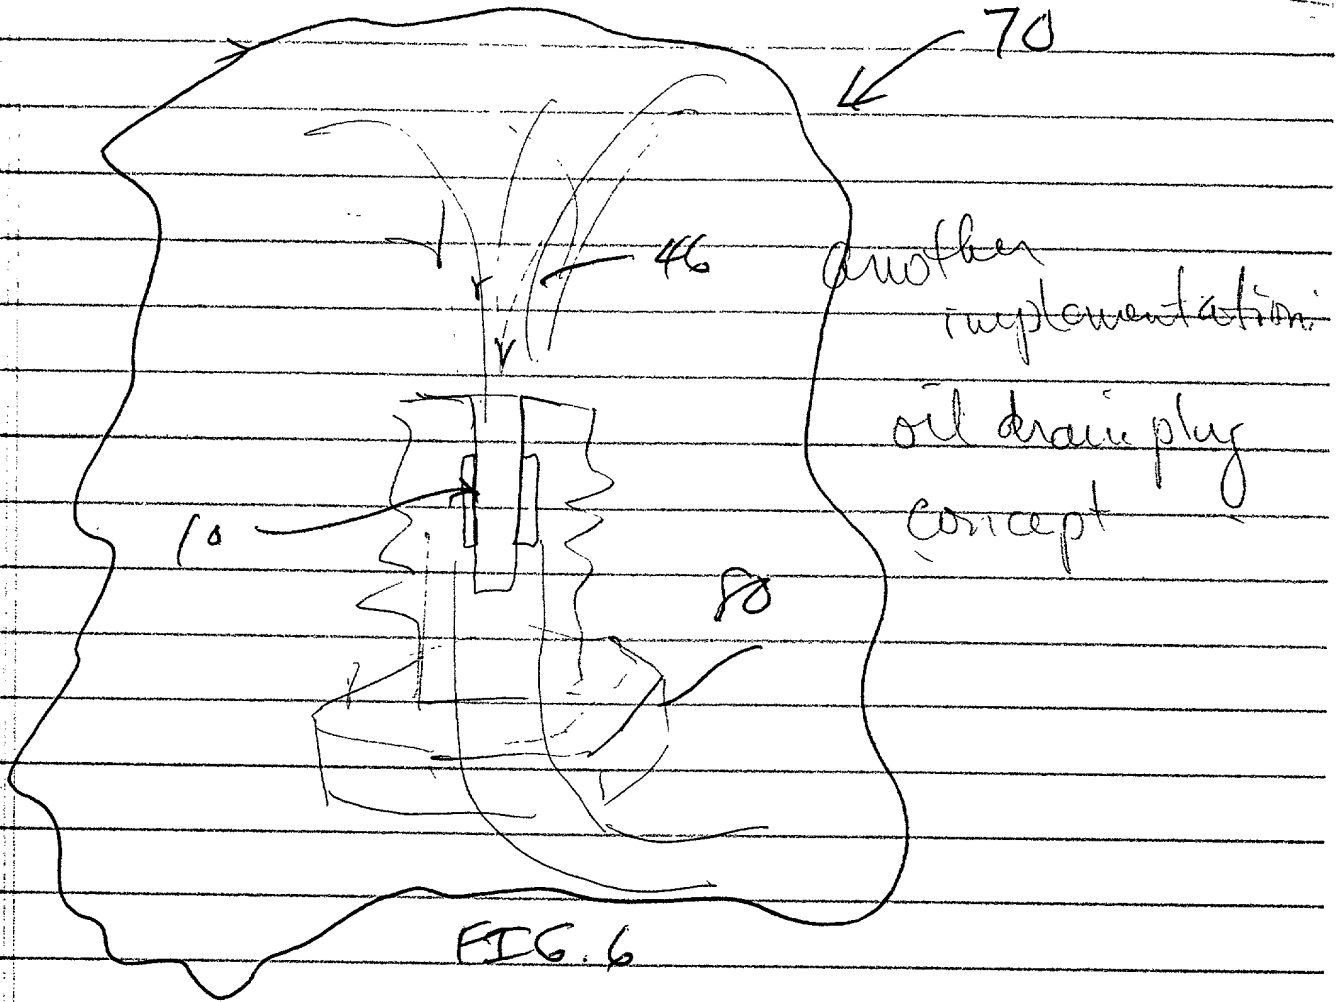 70
46
another
implementation:
oil drain plug
concept
10
80
FIG. 6